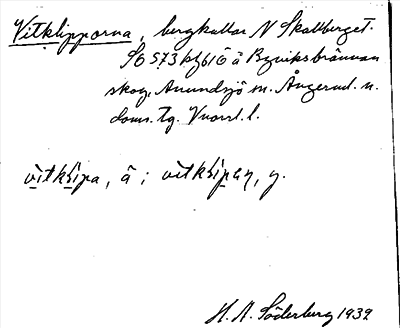 Vitklipporna, bergkullar N Skallberget.
Sö 573 å Byviksbrännan
skog, Anundsjö sn. Ångerml. n.
doms. Tg. l.
vitklipa, å ; vitklipan, y.
H. A. Söderberg 1939